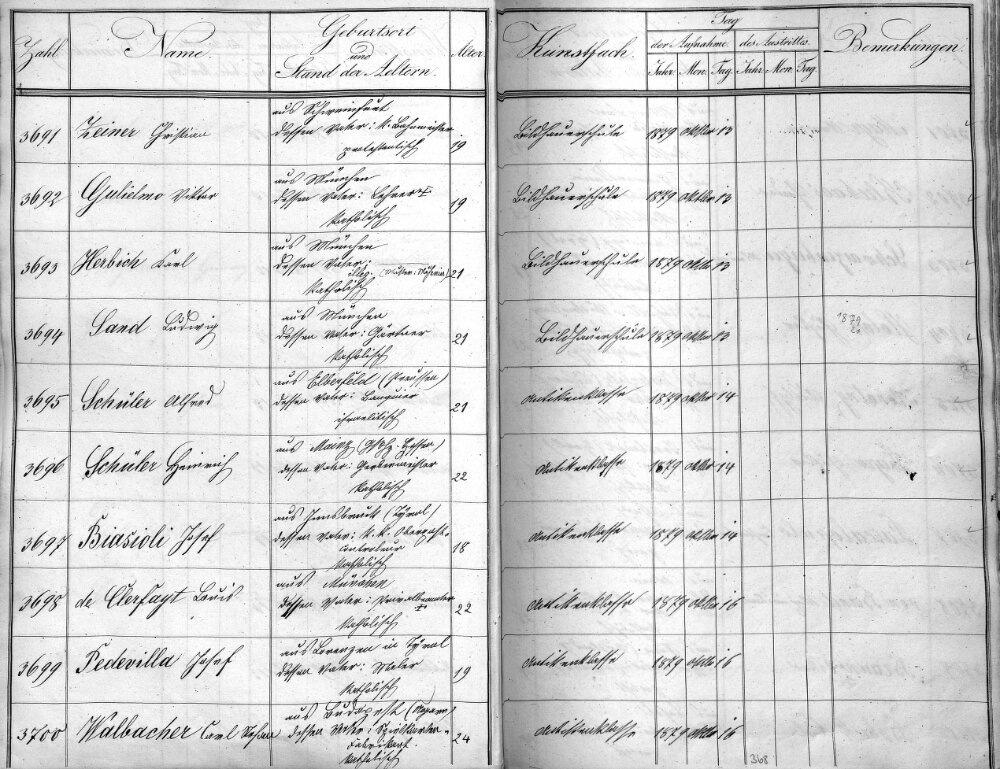 Zahl. Name. Geburtsort und Stand der Aeltern. Alter. Kunstfach. Tag der Aufnahme. des Austrittes. Bemerkungen.
Jahr. Mon. Tag. Jahr. Mon. Tag.
3691 Zeiner Christian aus Schweinfurt 19 Bildhauerschule 1879 Oktbr 13
dessen Vater: k. Bahnmeister
protestantisch
3692 Gulielmo Viktor aus München 19 Bildhauerschule 1879 Oktbr 13
dessen Vater: Lehrer †
katholisch
3693 Herbich Carl aus München 21 Bildhauerschule 1879 Oktbr 13
dessen Vater:
illeg. (Mutter: Näherin)
katholisch
3694 Sand Ludwig aus München 21 Bildhauerschule 1879 Oktbr 13 1879
dessen Vater: Gärtner
katholisch
3695 Schüler Alfred aus Elberfeld (Preussen) 21 Antikenklasse 1879 Oktbr 14
dessen Vater: Banquier
israelitisch
3696 Schüler Heinrich aus Mainz (Hessen) 22 Antikenklasse 1879 Oktbr 14
dessen Vater: Gerbermeister
katholisch
3697 Biasioli Josef aus Innsbruck (Tyrol) 18 Antikenklasse 1879 Oktbr 14
dessen Vater: k. k.
katholisch
3698 de Clerfayt Louis aus München 22 Antikenklasse 1879 Oktbr 16
dessen Vater: Privatbeamter †
katholisch
3699 Fedevilla Josef aus Lorenzen in Tyrol 19 Antikenklasse 1879 Oktbr 16
dessen Vater: Maler
katholisch
3700 Walbacher Carl Johann aus Budapest (Ungarn) 24 Antikenklasse 1879 Oktbr 16
dessen Vater: Spielkarten-
Fabrikant.
katholisch
368